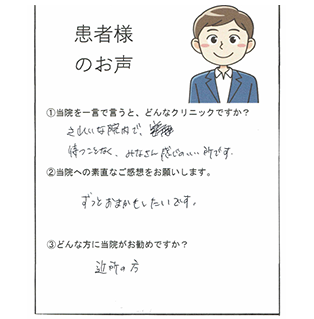 患者様
のお声
①当院を一言で言うと、どんなクリニックですか？
きれいな院内で、
待つことなく、みなさん感じのいい所です。
②当院への素直なご感想をお願いします。
ずっとおまかせしたいです。
③どんな方に当院がお勧めですか？
近所の方